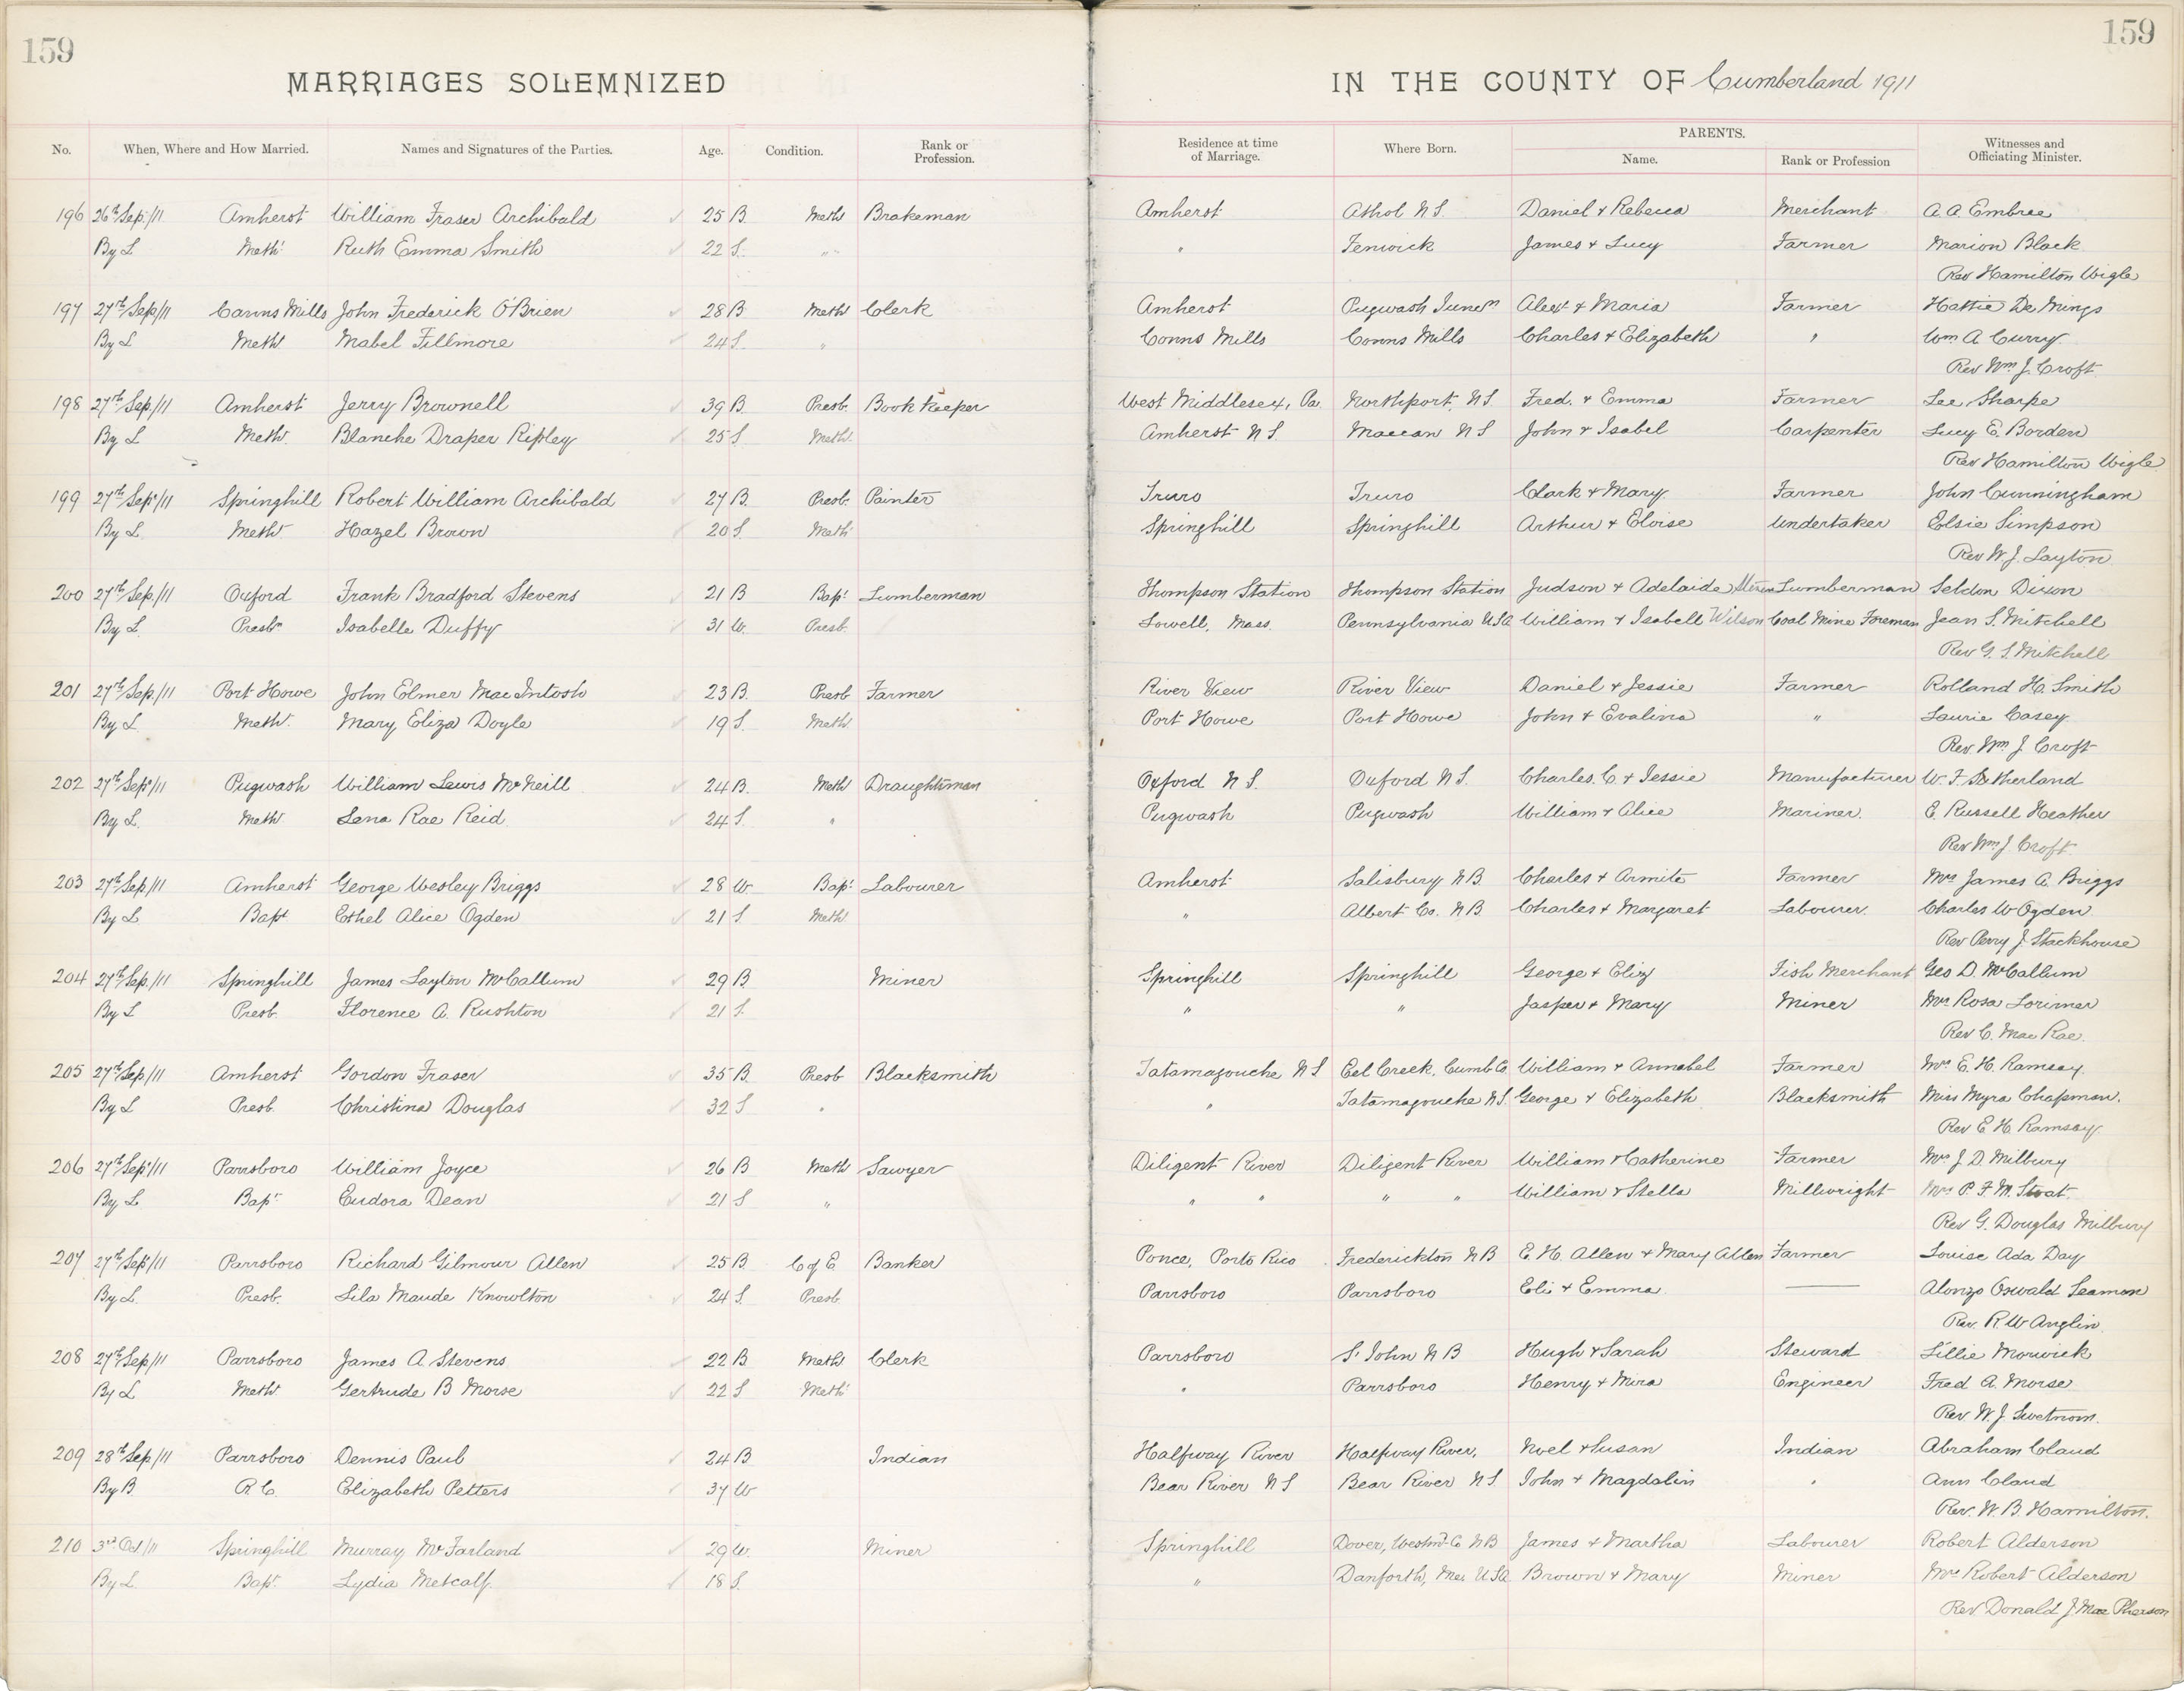 159 159
MARRIAGES SOLEMNIZED IN THE COUNTY OF Cumberland 1911
No. When, Where and How Married. Names and Signatures of the Parties. Age. Condition. Rank or Profession. Residence at time of Marriage. Where Born. PARENTS. Name. Rank or Profession Witnesses and Officiating Minister.
196 26th Sep/11 Amherst William Fraser Archibald 25 B. Meth Brakeman Amherst Athol N S. Daniel & Rebecca Merchant A. A. Embree
By L Meth Ruth Emma Smith 22 S. " " Fenwick James & Lucy Farmer Marion Black
Rev Hamilton Wigle
197 27th Sep/11 Conns Mills John Frederick O'Brien 28 B Meth Clerk Amherst Pugwash Juncn Alext & Maria Farmer Hattie De Mings
By L Meth Mabel Fillmore 24 S. " Conns Mills Conns Mills Charles & Elizabeth " Wm A Curry
Rev Wm J. Croft
198 27th Sep/11 Amherst Jerry Brownell 39 B. Presb. Book Keeper West Middlesex, Pa. Northport, N S. Fred. & Emma Farmer Lee Sharpe
By L Meth. Blanche Draper Ripley 25 S Meth Amherst N S. Maccan N S John & Isabel Carpenter Lucy E. Borden
Rev Hamilton Wigle
199 27th Sep/11 Springhill Robert William Archibald 27 B. Presb. Painter Truro Truro Clark & Mary Farmer John Cunningham
By L. Meth Hazel Brown 20 S. Meth Springhill Springhill Arthur & Eloise Undertaker Elsie Simpson
Rev W. J. Layton
200 27th Sep/11 Oxford Frank Bradford Stevens 21 B Bapt Lumberman Thompson Station Thompson Station Judson & Adelaide Steven Lumberman Seldon Dixon
By L. Presbn Isabelle Duffy 31 W. Presb. Lowell, Mass. Pennsylvania USA William & Isabell Wilson Coal Mine Foreman Jean S. Mitchell
Rev G. S. Mitchell
201 27th Sep/11 Port Howe John Elmer Mac Intosh 23 B. Presb Farmer River View River View Daniel & Jessie Farmer Rolland H. Smith
By L Meth. Mary Eliza Doyle 19 S. Meth Port Howe Port Howe John & Evalina " Laurie Casey
Rev. Wm J Croft
202 27th Sep/11 Pugwash William Lewis McNeill 24 B. Meth Draughtsman Oxford N S. Oxford N S. Charles. C & Jessie Manufacturer W. F. Sutherland
By L. Meth Lena Rae Reid 24 S. " Pugwash Pugwash William & Alice Mariner. E. Russell Heather
Rev Wm J Croft
203 27th Sep/11 Amherst George Wesley Briggs 28 W Bapt Labourer Amherst Salisbury N B. Charles & Armita Farmer Mrs James A. Briggs
By L Bapt Ethel Alice Ogden 21 S Meth " Albert Co. N B. Charles & Margaret Labourer. Charles W Ogden
Rev Perry J. Stackhouse
204 27th Sep/11 Springhill James Layton McCallum 29 B Miner Springhill Springhill George & Eliz Fish Merchant Geo D. McCallum
By L Presb. Florence A. Rushton 21 S. " " Jasper & Mary Miner Mrs Rosa Lorimer
Rev C. Mac Rae
205 27th Sep/11 Amherst Gordon Fraser 35 B. Presb Blacksmith Tatamagouche N S Eel Creek, Cumb Co. William & Annabel Farmer Mrs E. H. Ramsay
By L Presb. Christina Douglas 32 S " " Tatamagouche N S. George & Elizabeth Blacksmith Miss Myra Chapman.
Rev E H. Ramsay
206 27th Sep/11 Parrsboro William Joyce 26 B Meth Sawyer Diligent River Diligent River William & Catherine Farmer Mrs J D. Milbury
By L Bapt Eudora Dean 21 S " " " " " William & Stella Millwright Mrs P. F. M.
Rev G. Douglas Milbury
207 27th Sep/11 Parrsboro Richard Gilmour Allen 25 B. C of E Banker Ponce, Porto Rico Fredericton N B E. H. Allen & Mary Allen Farmer Louise Ada Day
By L. Presb. Lila Maude Knowlton 24 S. Presb. Parrsboro Parrsboro Eli & Emma — Alonzo Oswald Seaman
Rev. R W Anglin
208 27th Sep/11 Parrsboro James A Stevens 22 B Meth Clerk Parrsboro St John N B Hugh & Sarah Steward Lillie Morwick
By L Meth Gertrude B Morse 22 S Meth " Parrsboro Henry & Mira Engineer Fred A. Morse
Rev W. J. Swetnam.
209 28th Sep/11 Parrsboro Dennis Paul 24 B Indian Halfway River Halfway River, Noel & Susan Indian Abraham Claud
By B R. C. Elizabeth Petters 37 W Bear River N S Bear River N S. John & Magdalin " Ann Claud
Rev. W. B. Hamilton.
210 3rd Oct/11 Springhill Murray McFarland 29 W. Miner Springhill Dover, Westmd Co N B James & Martha Labourer Robert Alderson
By L. Bapt. Lydia Metcalf 18 S. " Danforth, Me. USA Brown & Mary Miner Mrs Robert Alderson
Rev Donald J. Mac Pherson